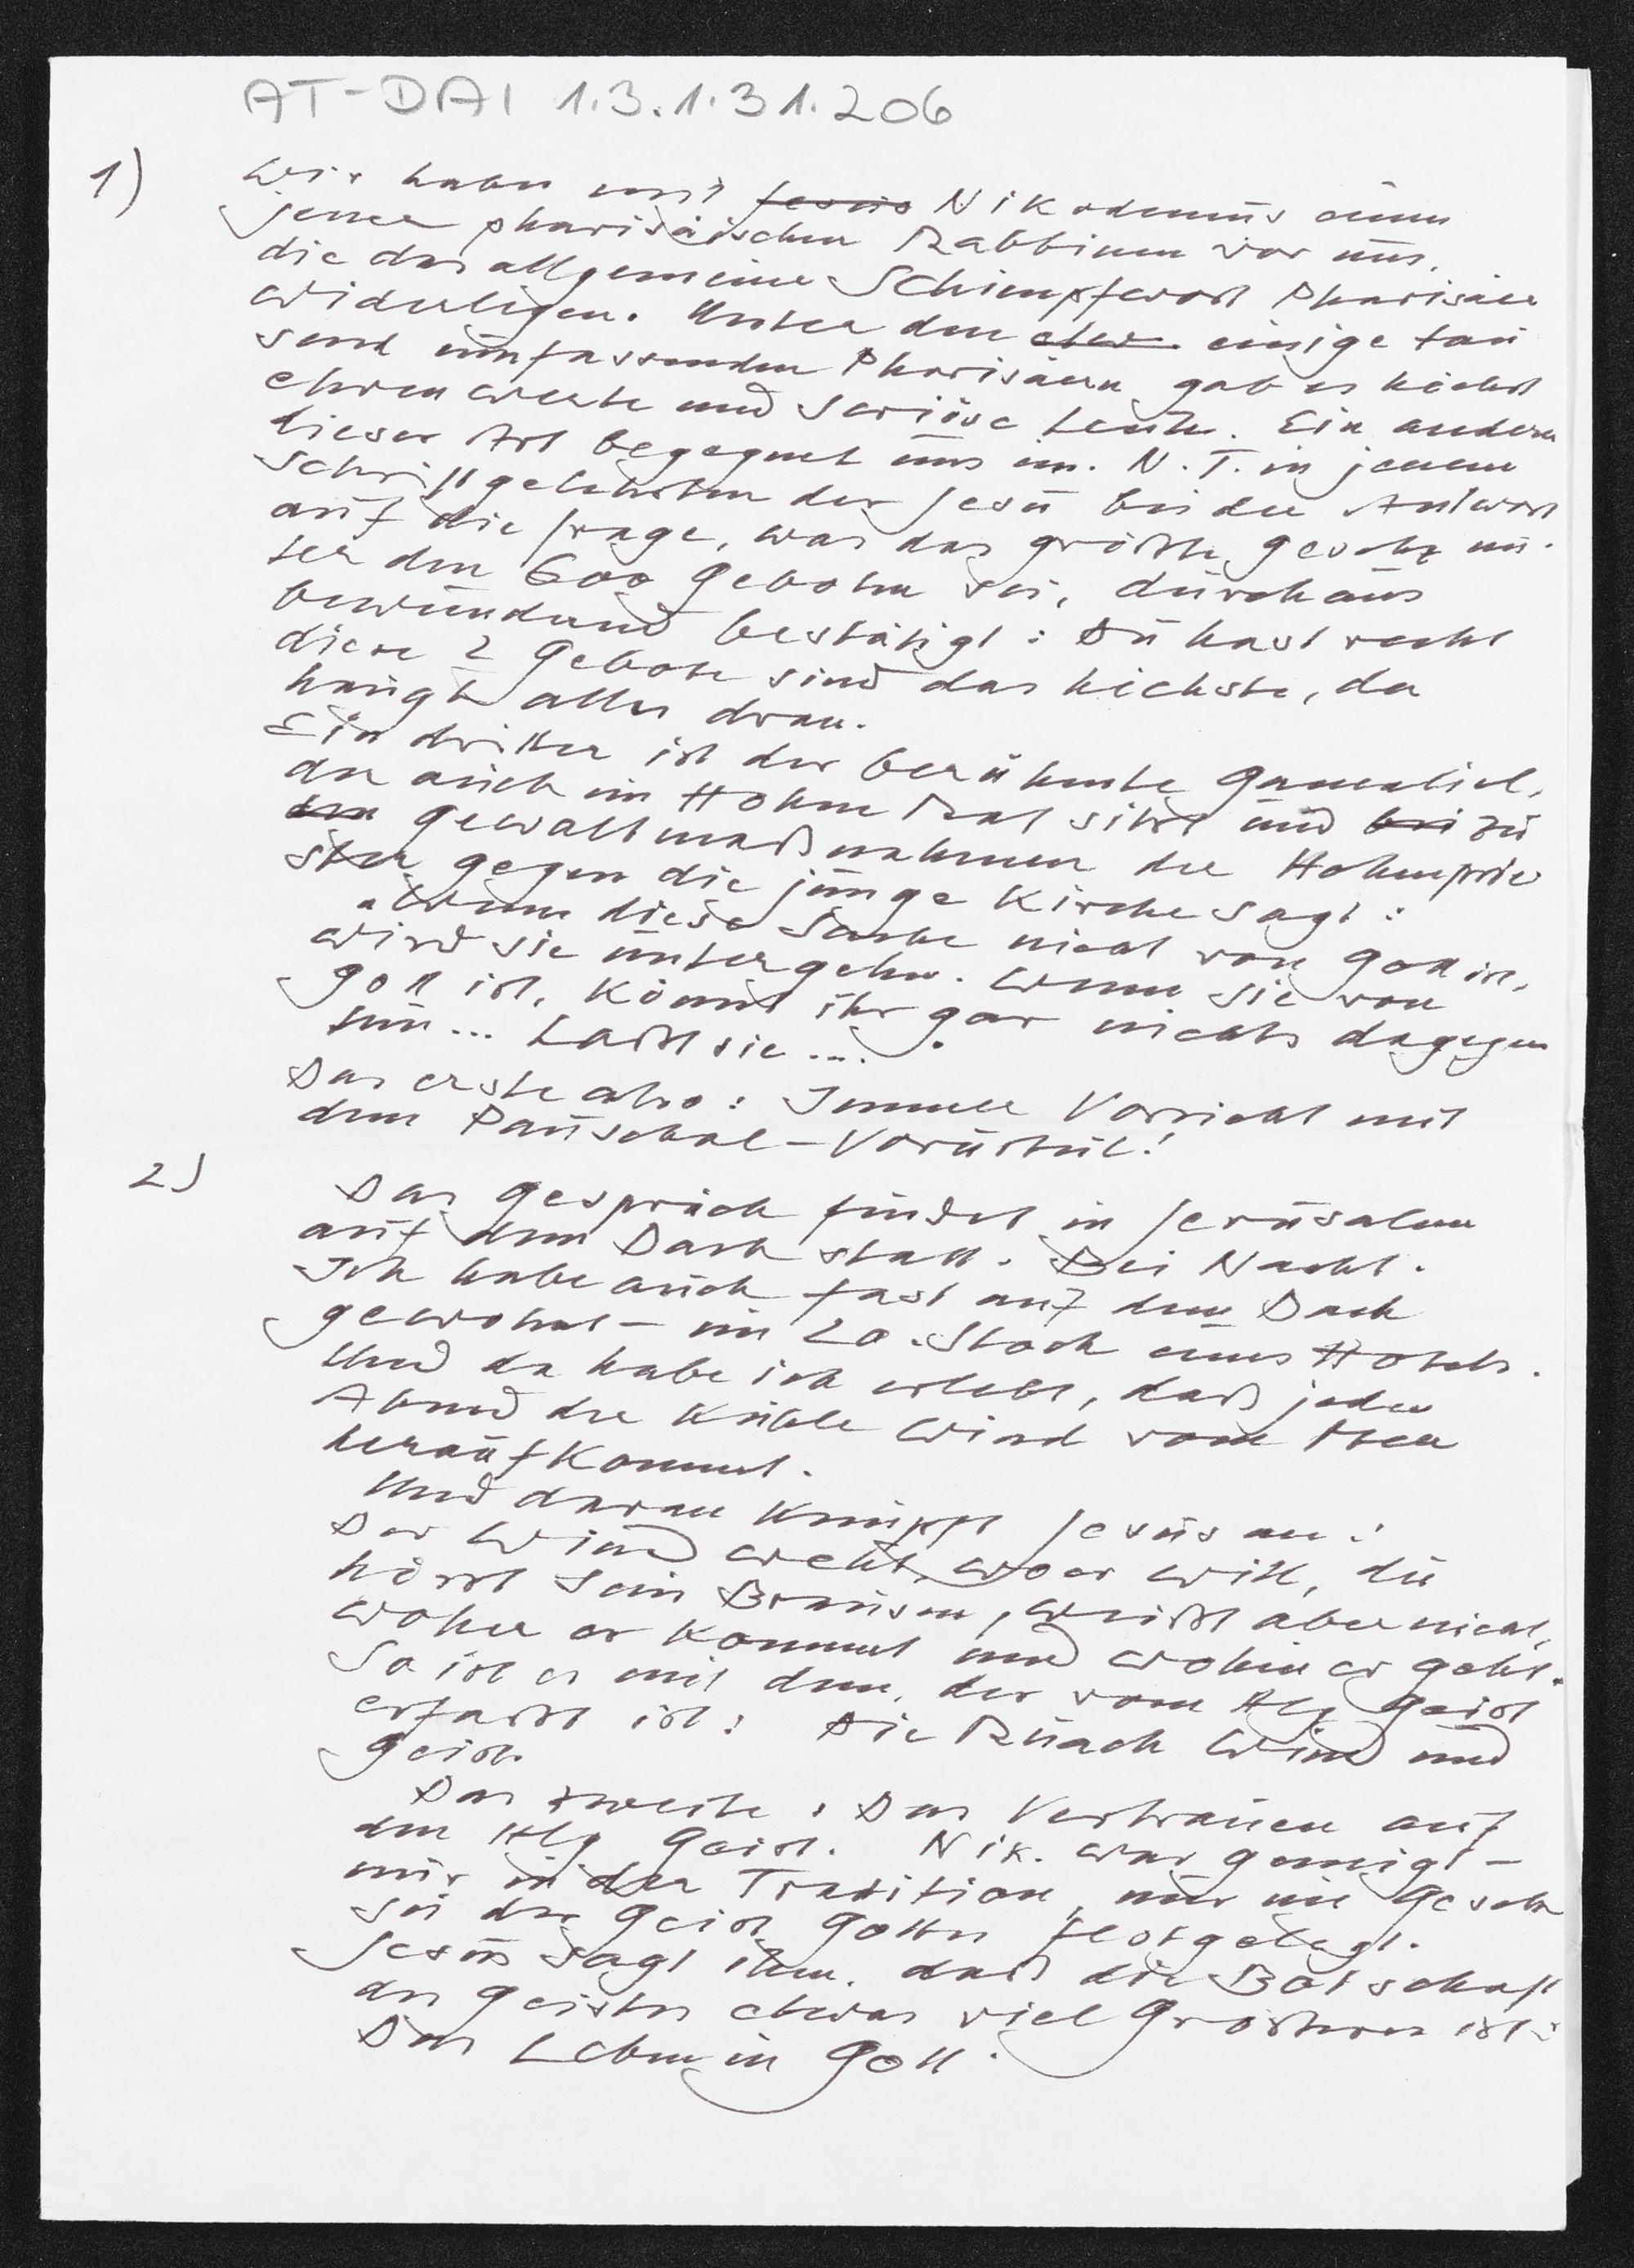 AT-DAI 1.3.1.31.206
1)
Wir haben mit Jesus Nikodemus einen
jener pharisäischen Rabbinen vor uns,
die das allgemeine Schimpfwort Pharisäer
widerlegen. Unter den etwa einige tau
send umfassenden Pharisäern gab es höchst
ehrenwerte und seriöse Leute. Ein anderer
dieser Art begegnet uns im N.T. in jenem
Schriftgelehrten der Jesu bei der Antwort
auf die Frage, was das größte Gesetz un-
ter den 600 Geboten sei, durchaus
bewundernd bestätigt: Du hast recht
diese 2 Gebote sind das höchste, da
hängt alles dran.
Ein dritter ist der berühmte Gamaliel,
der auch im Hohen Rat sitzt und bei zu
den Gewaltmaßnahmen der Hohenprie
ster gegen die junge Kirche sagt:
"Wenn diese Sache nicht von Gott ist,
wird sie untergehn. Wenn sie von
Gott ist, könnt ihr gar nichts dagegen
tun... Laßt sie....
Das erste also: Immer Vorsicht mit
dem Pauschal-Vorurteil!
2)
Das Gespräch findet in Jerusalem
auf dem Dach statt. Bei Nacht.
Ich habe auch fast auf dem Dach
gewohnt - im 20. Stock eines Hotels.
Und da habe ich erlebt, daß jeden
Abend der kühle Wind vom Meer
heraufkommt.
Und daran knüpft Jesus an:
Der Wind weht, wo er will, du
hörst sein Brausen, weißt aber nicht,
woher er kommt und wohin er geht.
So ist es mit dem, der vom Hlg Geist
erfaßt ist: Die Ruach Wind und
Geist.
Das zweite: Das Vertrauen auf
den Hlg Geist. Nik. war geneigt -
nur in der Tradition, nur im Gesetz
sei der Geist Gottes festgelegt.
Jesus sagt ihm, daß die Botschaft
des Geistes etwas viel Größeres ist:
Das Leben in Gott.